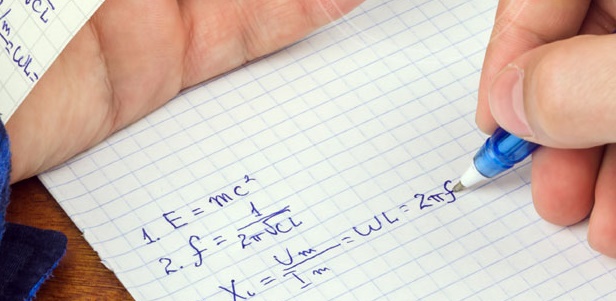 √CL
/m = WL =
1. E = mc²
2. f = 1/2π√CL
X_L = Um/Im = WL = 2πf